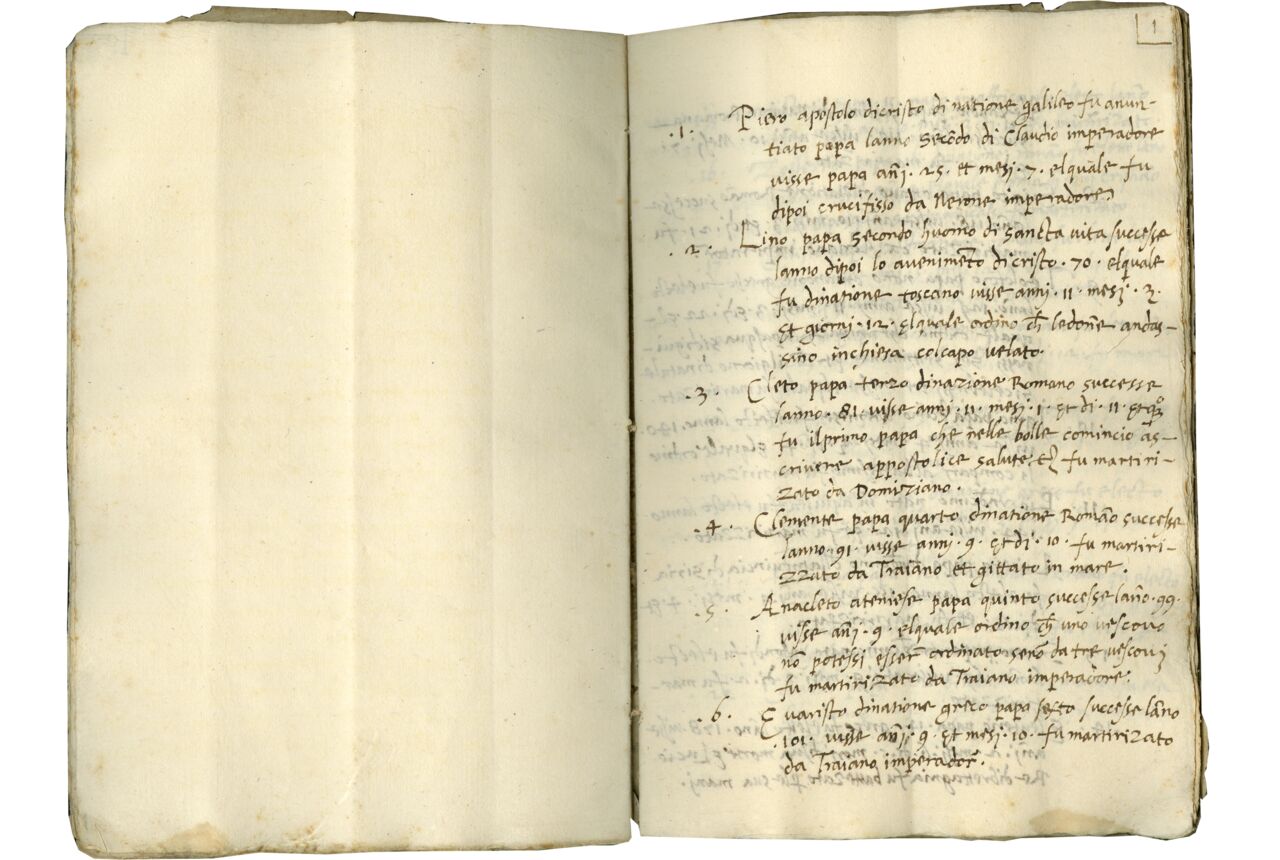 1
.1. Piero apostolo dicristo di natione galileo fu anun-
tiato papa lanno secõdo di Claudio imperadore
visse papa añi . 25 . et mesi . 7 . elquale fu
dipoi crucifisso da Nerone imperadore
.2. Lino papa secondo huomo di sancta vita successe
lanno dipoi lo avenimẽto di cristo . 70 . elquale
fu dinatione toscano visse anni . 11 . mesi . 3 .
et giorni . 12 . elquale ordino ch̃ ledonñe andas-
sino inchiesa colcapo velato .
.3. Cleto papa terzo dinazione Romano successe
lanno . 81 . visse anni . 11 . mesi . 1 . et di . 11 .
fu ilprimo papa che nelle bolle comincio as-
crivere apostolice salute fu martiri-
zato da Domiziano .
.4. Clemente papa quarto dinatione Romano successe
lanno . 91 . visse anni . 9 . et di . 10 . fu martiri-
zzato da Traiano et gittato in mare .
.5. Anacleto ateniese papa quinto successe lañο . 99 .
visse añi . 9 . elquale ordino ch̃ uno vescovo
nõ potessi esser̃ ordinato senõ da tre vescovi
fu martirizato da Traiano imperadore .
.6. Evaristo dinatione greco papa sexto successe lãno
. 101 . visse añi . 9 . et mesi . 10 . fu martirizato
da Traiano imperador̃ .